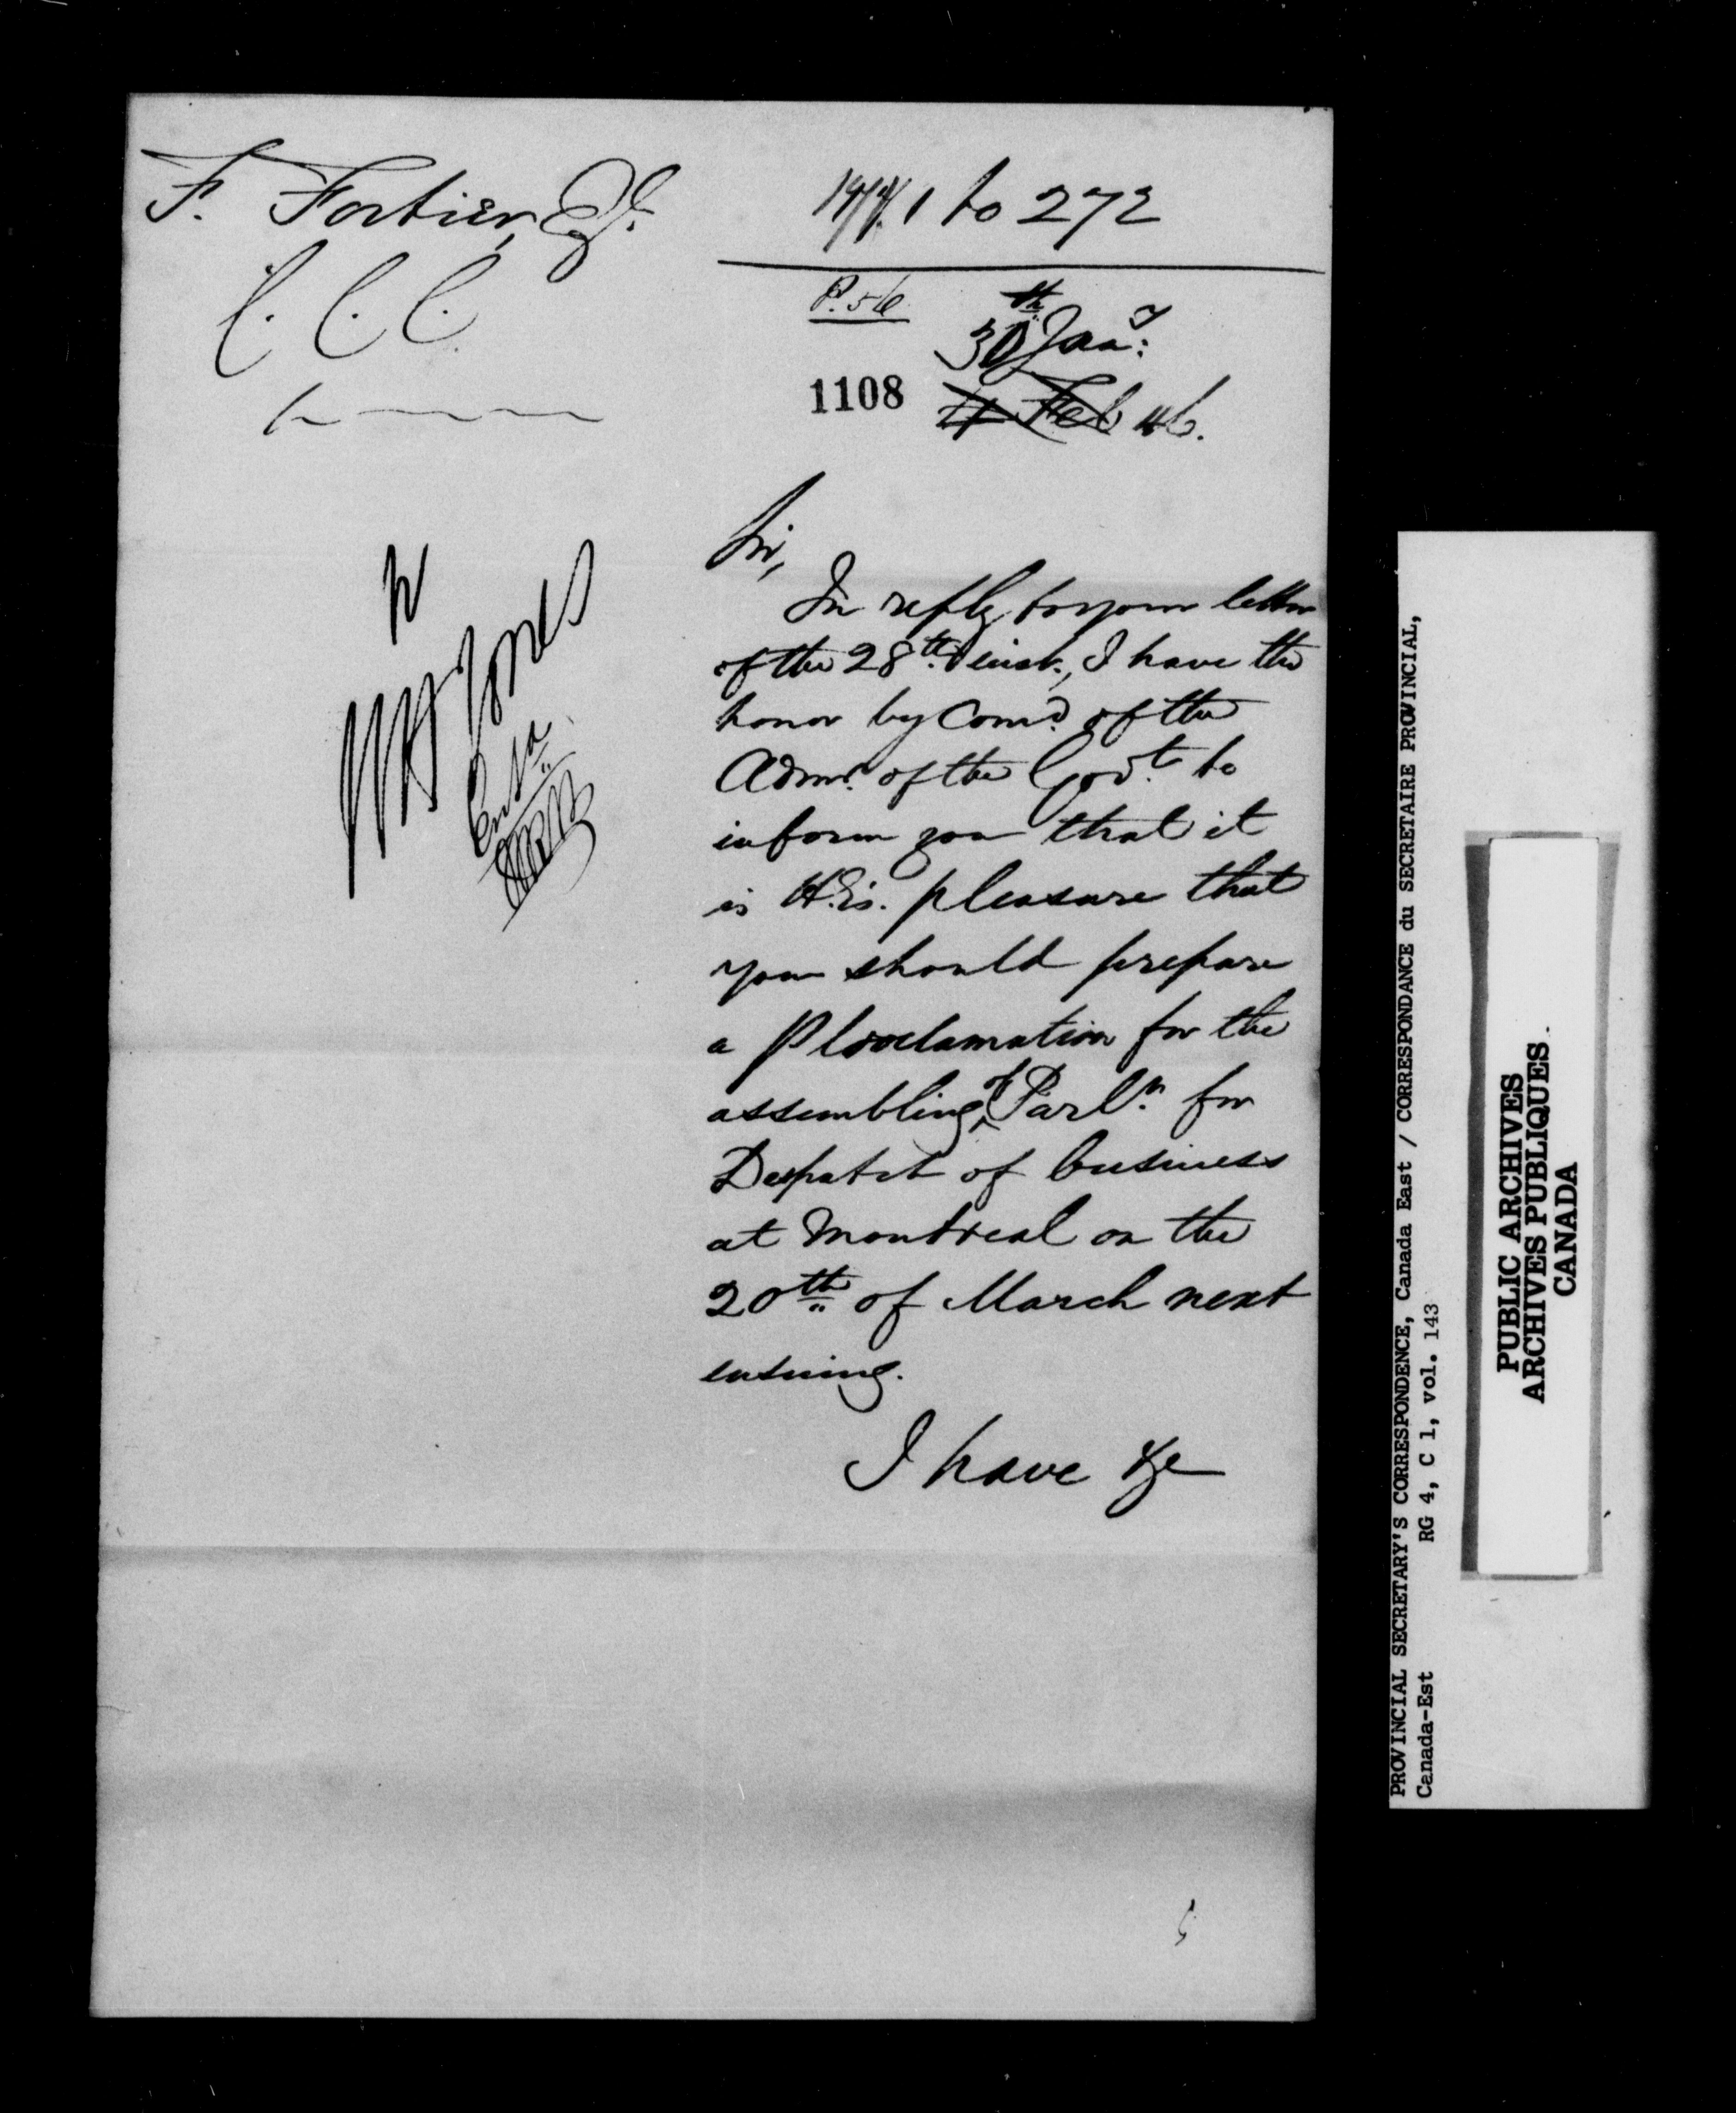 F. Fortier, Esqr.
C. C. C.
1 to 272
P. 56
30th Jany:
1108 4 Feb 46.
Sir,
In reply to your letter
of the 28th. inst., I have the
honor by Comd. of the
Admr. of the Govt. to
inform you that it
is H.E's. pleasure that
you should prepare
a Proclamation for the
assembling of Parlt. for
Despatch of business
at Montreal on the
20th of March next
ensuing.
I have &c
Jones
Entd
PROVINCIAL SECRETARY'S CORRESPONDENCE, Canada East / CORRESPONDANCE du SECRETAIRE PROVINCIAL,
Canada-Est RG 4, C 1, vol. 143
PUBLIC ARCHIVES
ARCHIVES PUBLIQUES.
CANADA